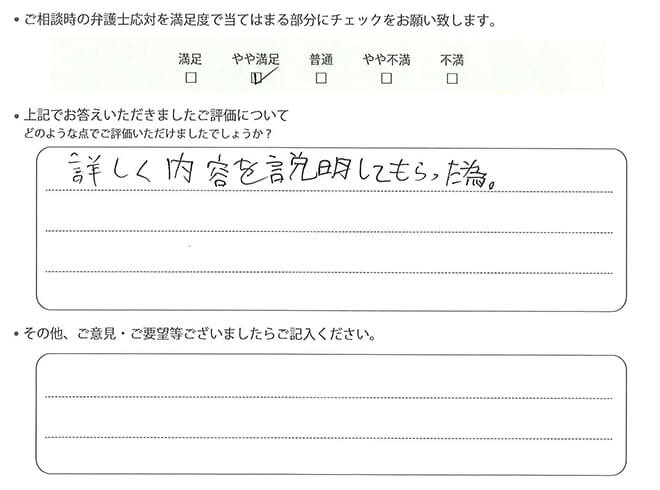 • ご相談時の弁護士応対を満足度で当てはまる部分にチェックをお願い致します。
満足 やや満足 普通 やや不満 不満
□ ☑ □ □ □
• 上記でお答えいただきましたご評価について
どのような点でご評価いただけましたでしょうか？
詳しく内容を説明してもらった為。
• その他、ご意見・ご要望等ございましたらご記入ください。